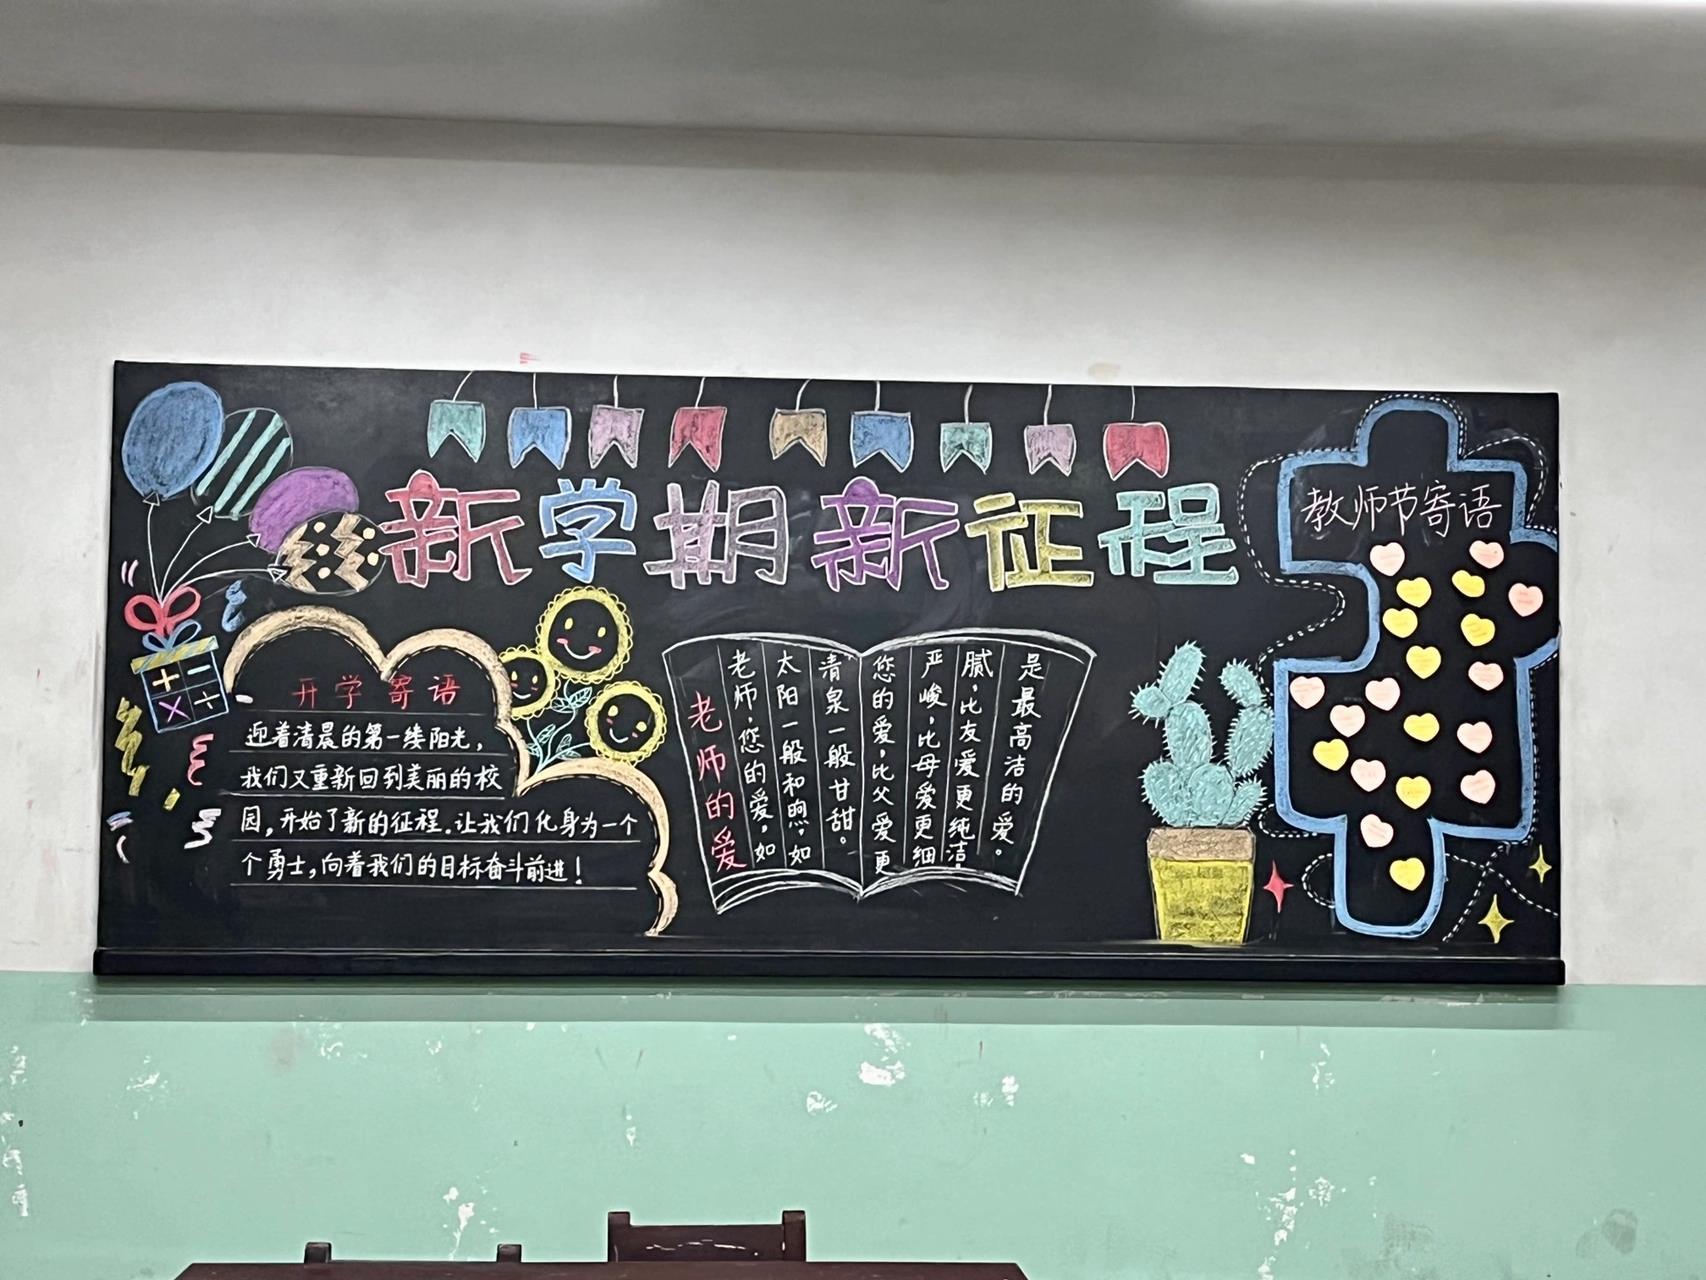 新学期新征程
开学寄语
迎着清晨的第一缕阳光，
我们又重新回到美丽的校
园，开始了新的征程。让我们化身为一个
个勇士，向着我们的目标奋斗前进！
老师的爱
老师，您的爱，如
太阳一般和煦，如
清泉一般甘甜。
您的爱，比父爱更
严峻，比母爱更细
腻，比友爱更纯洁，
是最高洁的爱。
教师节寄语
+ -
× ÷